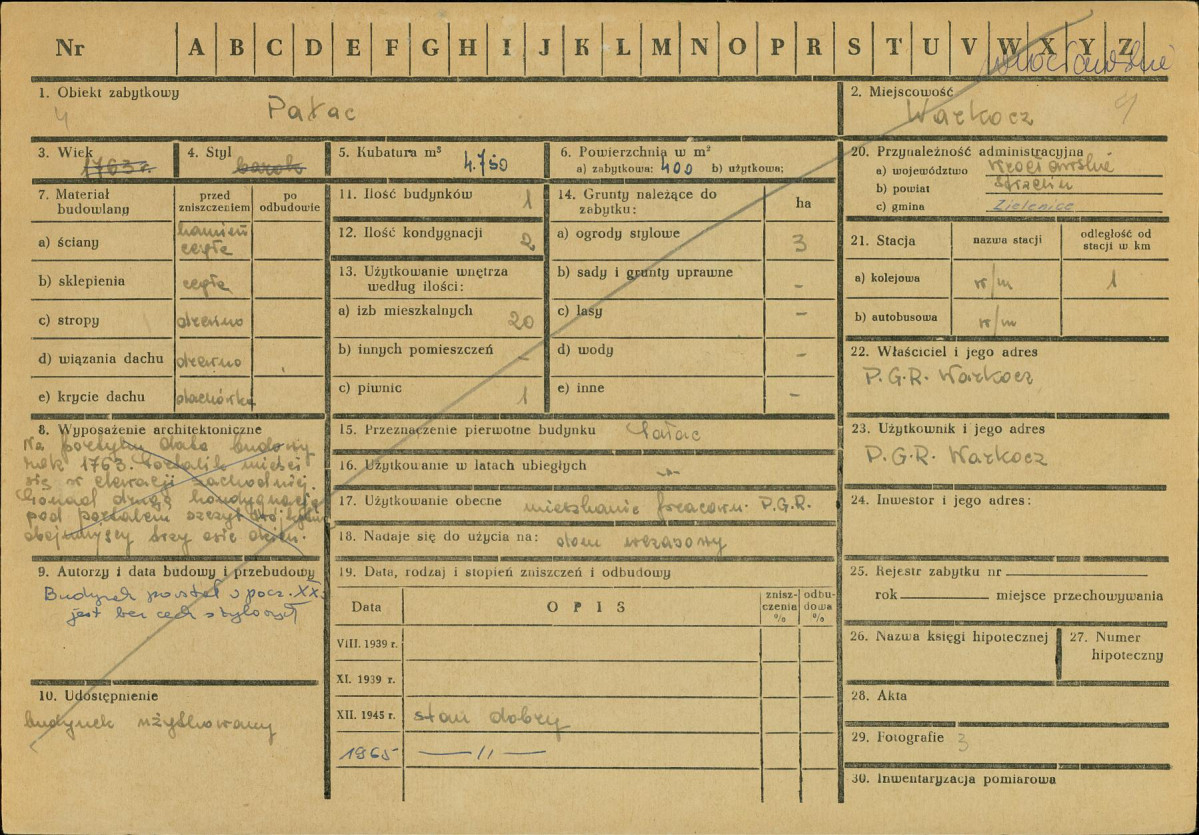 Nr A B C D E F G H I J K L M N O P R S T U V W X Y Z
wrocławskie
1. Obiekt zabytkowy
4
Pałac
2. Miejscowość
Warkocz
3. Wiek
1763 r.
4. Styl
barok
5. Kubatura m³
4.750
6. Powierzchnia w m²
a) zabytkowa: 400 b) użytkowa:
7. Materiał budowlany
przed zniszczeniem
po odbudowie
a) ściany
kamień
cegła
b) sklepienia cegła
c) stropy drewno
d) wiązania dachu drewno
e) krycie dachu dachówka
8. Wyposażenie architektoniczne
Na portyku data budowy
rok 1763. Portalik mieści
się w elewacji zachodniej.
Ponad drugą kondygnacją
pod portalem szczyt
obejmujący trzy osie okien.
9. Autorzy i data budowy i przebudowy
Budynek powstał w pocz. XX
jest bez cech stylowych
10. Udostępnienie
budynek użytkowany
11. Ilość budynków 1
12. Ilość kondygnacji 2
13. Użytkowanie wnętrza
według ilości:
a) izb mieszkalnych 20
b) innych pomieszczeń -
c) piwnic 1
14. Grunty należące do
zabytku:
ha
a) ogrody stylowe 3
b) sady i grunty uprawne -
c) lasy -
d) wody -
e) inne -
15. Przeznaczenie pierwotne budynku Pałac
16. Użytkowanie w latach ubiegłych -"-
17. Użytkowanie obecne mieszkanie pracown. P.G.R.
18. Nadaje się do użycia na: dom wczasowy
19. Data, rodzaj i stopień zniszczeń i odbudowy
Data
OPIS
znisz-
czenia
%
odbu-
dowa
%
VIII. 1939 r.
XI. 1939 r.
XII. 1945 r. stan dobry
1965 — // —
20. Przynależność administracyjna
a) województwo wrocławskie
b) powiat Strzelin
c) gmina Zielenice
21. Stacja
nazwa stacji
odległość od
stacji w km
a) kolejowa w/m 1
b) autobusowa w/m
22. Właściciel i jego adres
P.G.R. Warkocz
23. Użytkownik i jego adres
P.G.R. Warkocz
24. Inwestor i jego adres:
25. Rejestr zabytku nr
rok miejsce przechowywania
26. Nazwa księgi hipotecznej
27. Numer
hipoteczny
28. Akta
29. Fotografie 3
30. Inwentaryzacja pomiarowa